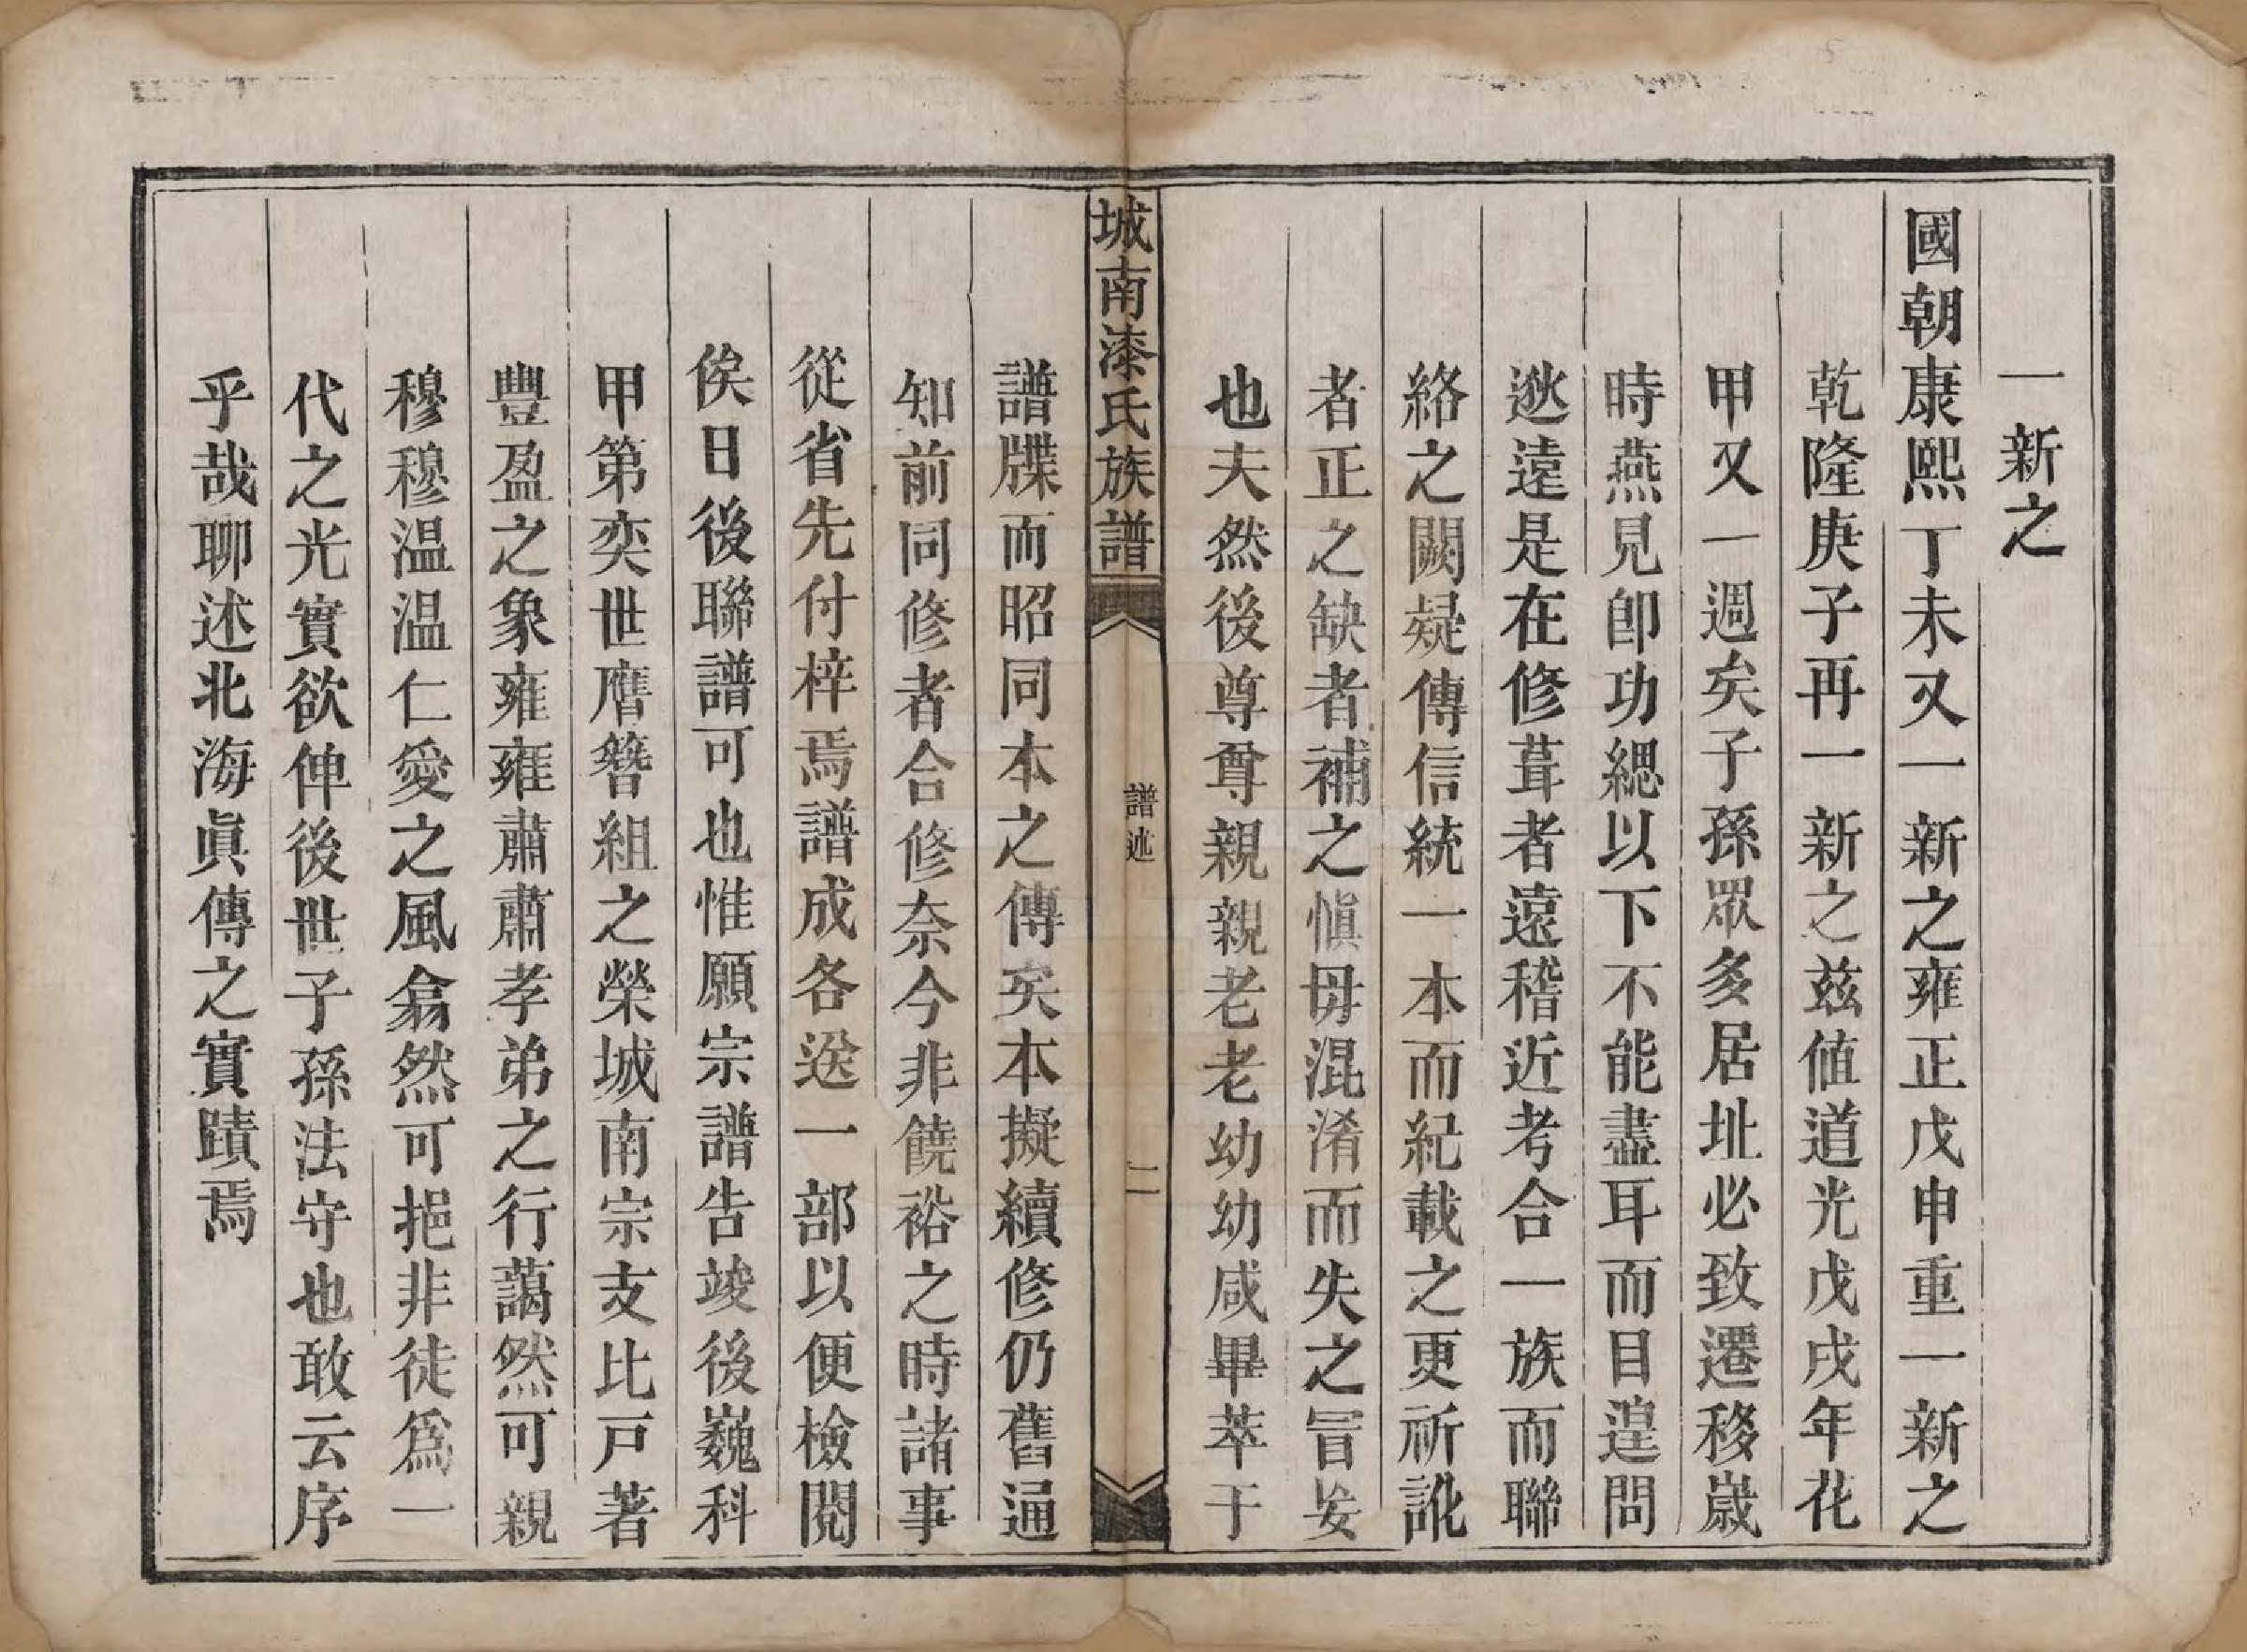 一新之
國朝康熙丁未又一新之雍正戊申重一新之
乾隆庚子再一新之兹値道光戊戌年花
甲又一週矣子孫眾多居址必致遷移歲
時燕見卽功緦以下不能盡耳而目遑問
逖遠是在修葺者遠稽近考合一族而聯
絡之闕疑傳信統一本而紀載之更祈訛
者正之缺者補之愼毋混淆而失之冒妄
也夫然後尊尊親親老老幼幼咸畢萃于
城南漆氏族譜
譜述
二
譜牒而昭同本之傳矣本擬續修仍舊通
知前同修者合修奈今非饒裕之時諸事
從省先付梓焉譜成各送一部以便檢閱
俟日後聯譜可也惟願宗譜告竣後巍科
甲第奕世膺簪組之榮城南宗支比戸著
豐盈之象雍雍肅肅孝弟之行藹然可親
穆穆温温仁愛之風翕然可挹非徒爲一
代之光實欲俾後世子孫法守也敢云序
乎哉聊述北海眞傳之實蹟焉